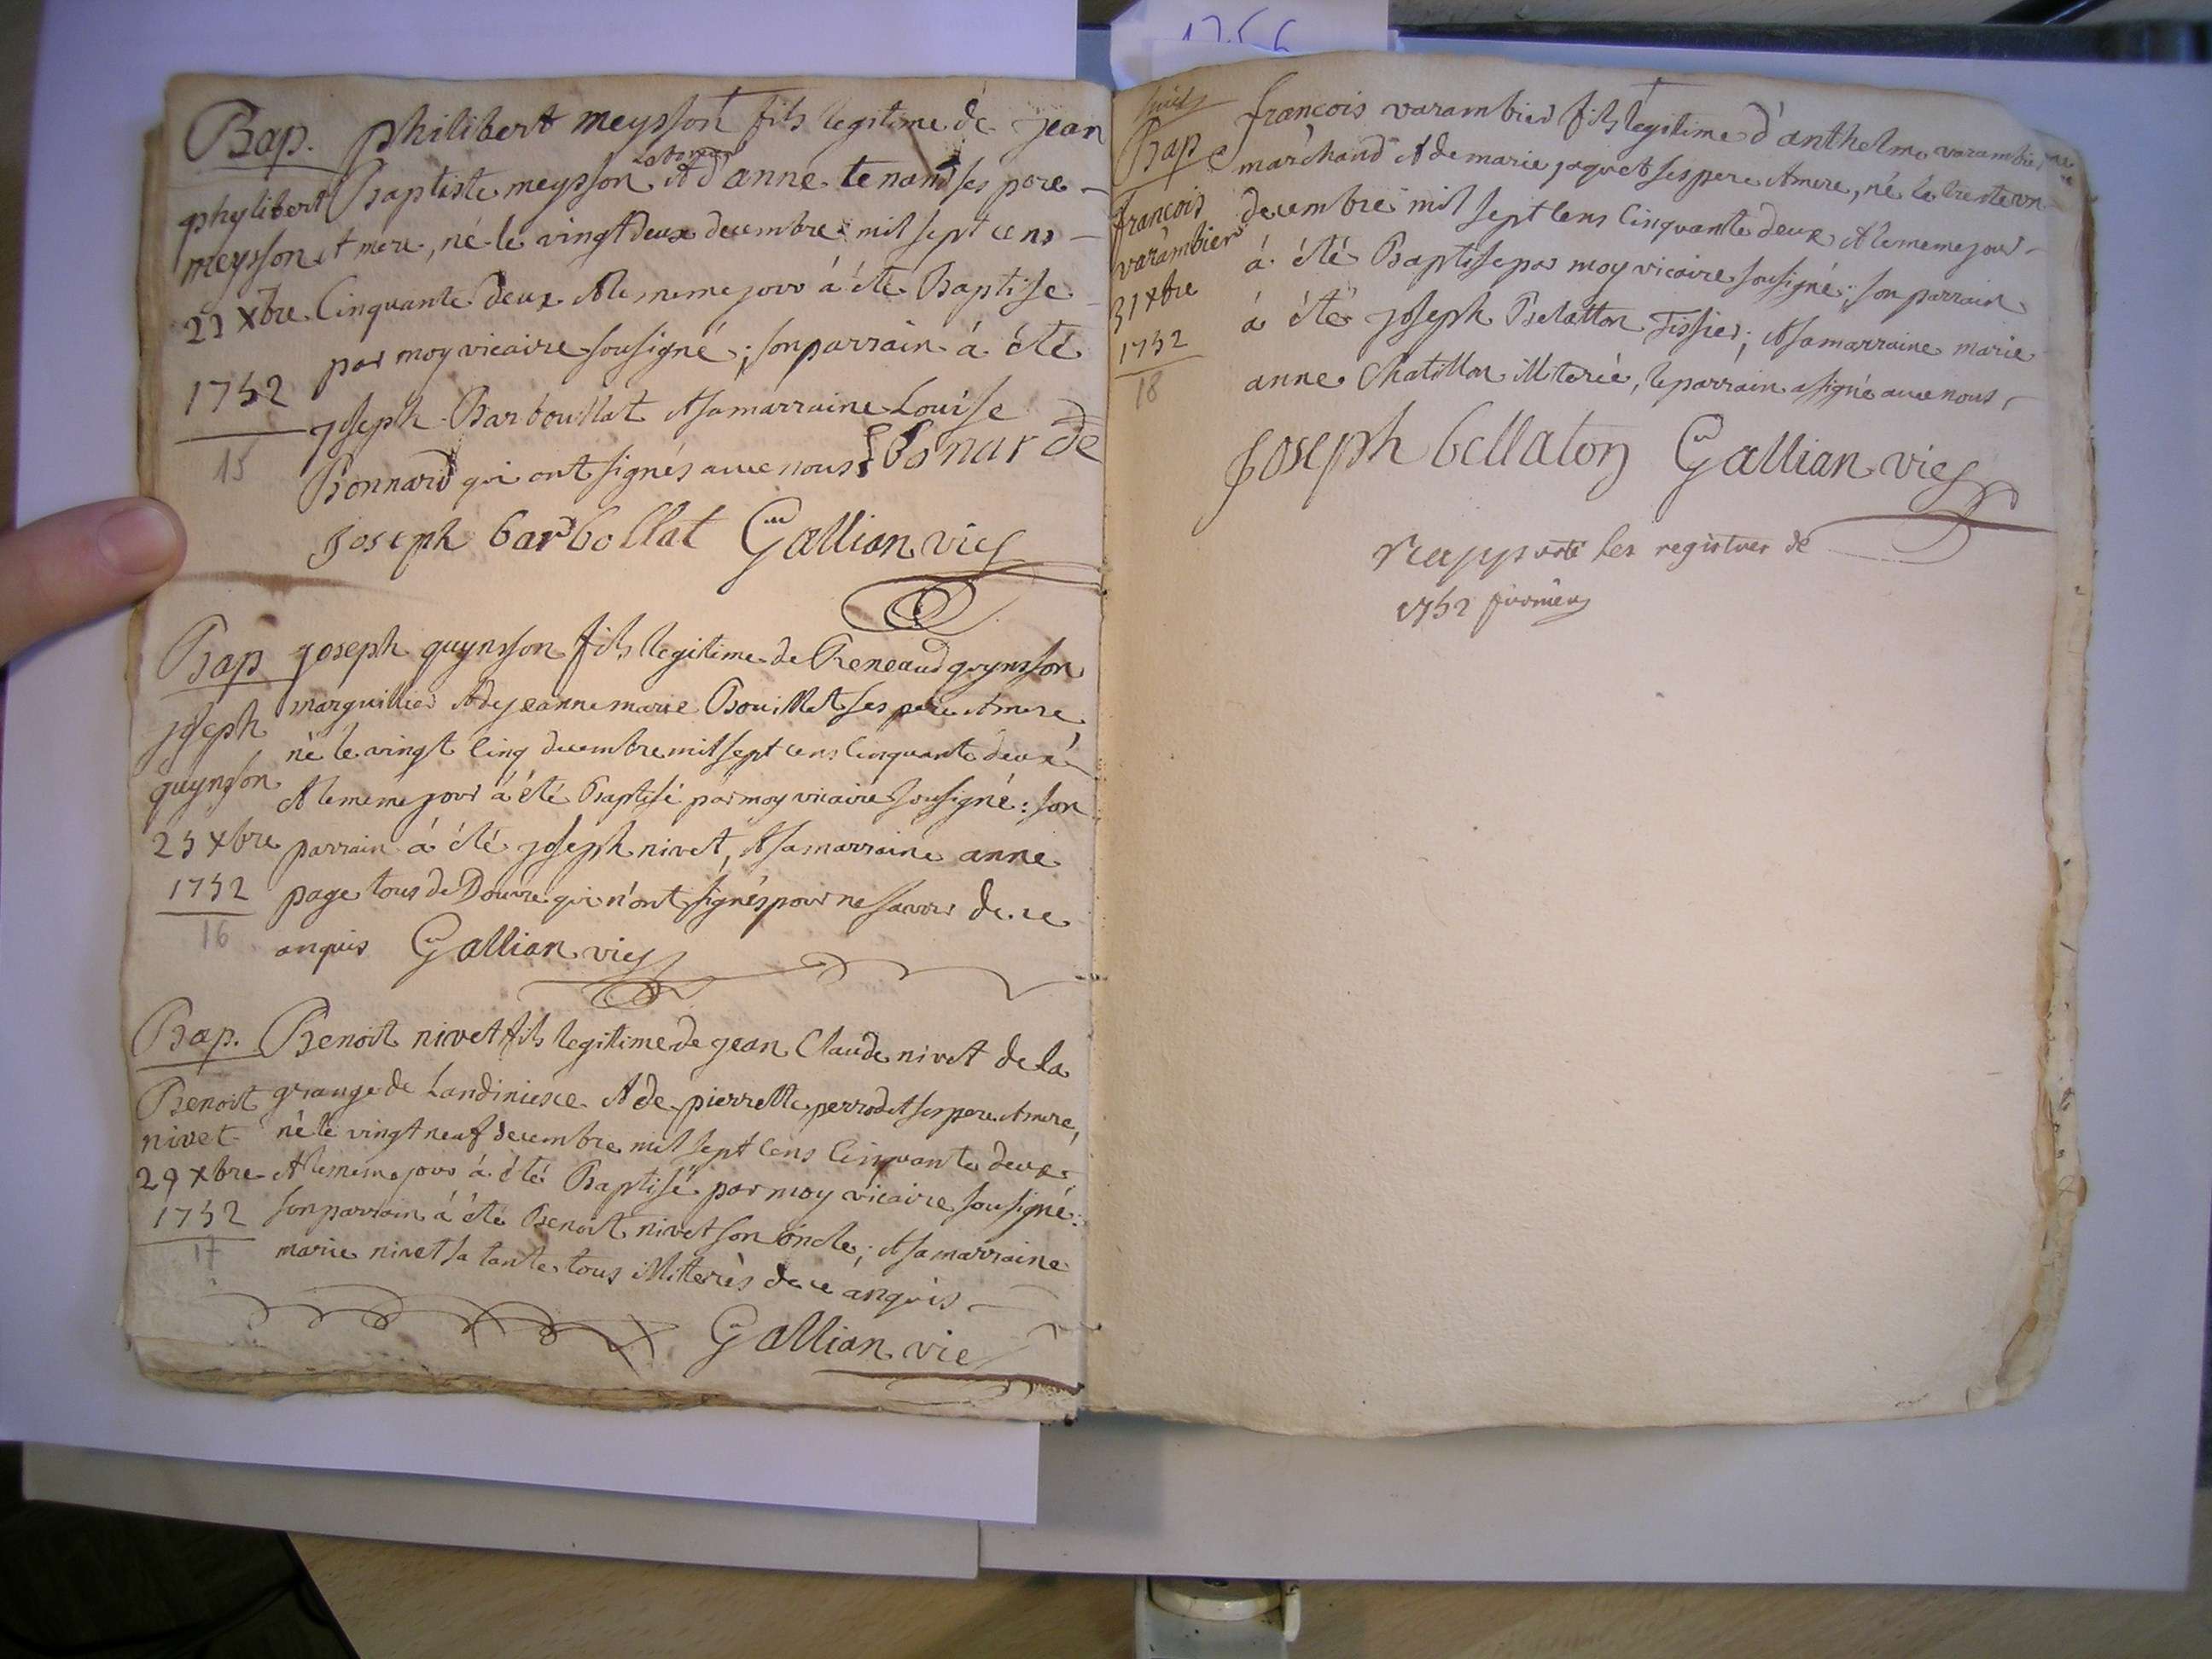 1756
Bap. philibert meysson fils legitime de jean
Laboureur
phylibert Baptiste meysson et d'anne tenand ses pere
meysson et mere, né le vingt deux decembre mil sept cens
22 xbre Cinquante deux et le meme jour à été Baptise
par moy vicaire sousigné; son parrain à été
1752
joseph Barbouillat et sa marraine Louise
15
Bonnard qui ont signés avec nous Lbonarde
joseph barbollat Gallian vic
Bap joseph guynsson fils legitime de Reneaud guynsson
marguillier et de jeanne marie Bouillet ses pere et mere,
joseph né le vingt cinq decembre mil sept cens cinquante deux
guynsson et le meme jour à été Baptisé par moy vicaire sousigné: son
25 xbre parrain à été joseph nivet, et sa marraine anne
1752 page tous de Douvre qui n'ont signés pour ne savoir de ce
16 enquis Gallian vic
Bap. Benoit nivet fils legitime de jean Claude nivet de la
Benoit grange de et de pierrette perrodet ses pere et mere,
nivet né le vingt neuf decembre mil sept cens cinquante deux
29 xbre et le meme jour à été Baptisé par moy vicaire sousigné:
1752 son parrain à été Benoit nivet son oncle; et sa marraine
17 marie nivet sa tante tous illiterés de ce anquis
Gallian vic
françois varambier fils legitime d'anthelme varambier
Bap marchand et de marie jaquet ses pere et mere, né le trente un
françois decembre mil sept cens cinquante deux et le meme jour
varambier à été Baptisé par moy vicaire sousigné; son parrain
31 xbre à été joseph Belatton Tissier; et sa marraine marie
1752
18 anne Chatillon illiterée, le parrain a signé avec nous
joseph bellaton Gallian vic
rapporté les registres de
1752